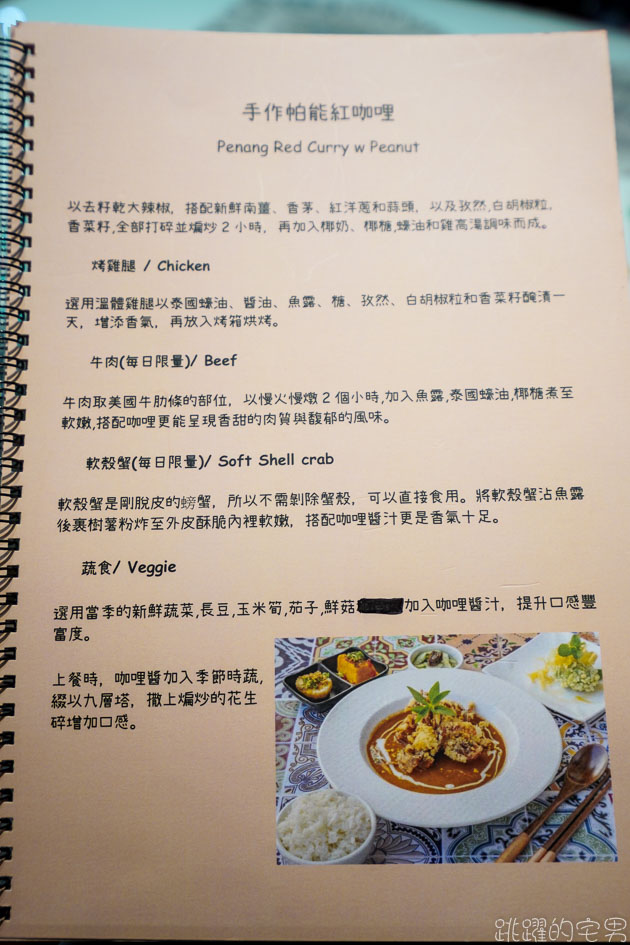 手作帕能紅咖哩
Penang Red Curry w Peanut
以去籽乾大辣椒，搭配新鮮南薑、香茅、紅洋蔥和蒜頭，以及孜然,白胡椒粒,
香菜籽,全部打碎並煸炒２小時，再加入椰奶、椰糖,蠔油和雞高湯調味而成。
烤雞腿 / Chicken
選用溫體雞腿以泰國蠔油、醬油、魚露、糖、孜然、白胡椒粒和香菜籽醃漬一
天，增添香氣，再放入烤箱烘烤。
牛肉(每日限量)/ Beef
牛肉取美國牛肋條的部位，以慢火慢燉２個小時,加入魚露,泰國蠔油,椰糖煮至
軟嫩,搭配咖哩更能呈現香甜的肉質與馥郁的風味。
軟殼蟹(每日限量)/ Soft Shell crab
軟殼蟹是剛脫皮的螃蟹，所以不需剝除蟹殼，可以直接食用。將軟殼蟹沾魚露
後裹樹薯粉炸至外皮酥脆內裡軟嫩，搭配咖哩醬汁更是香氣十足。
蔬食/ Veggie
選用當季的新鮮蔬菜,長豆,玉米筍,茄子,鮮菇加入咖哩醬汁，提升口感豐
富度。
上餐時，咖哩醬加入季節時蔬,
綴以九層塔，撒上煸炒的花生
碎增加口感。
跳躍的宅男